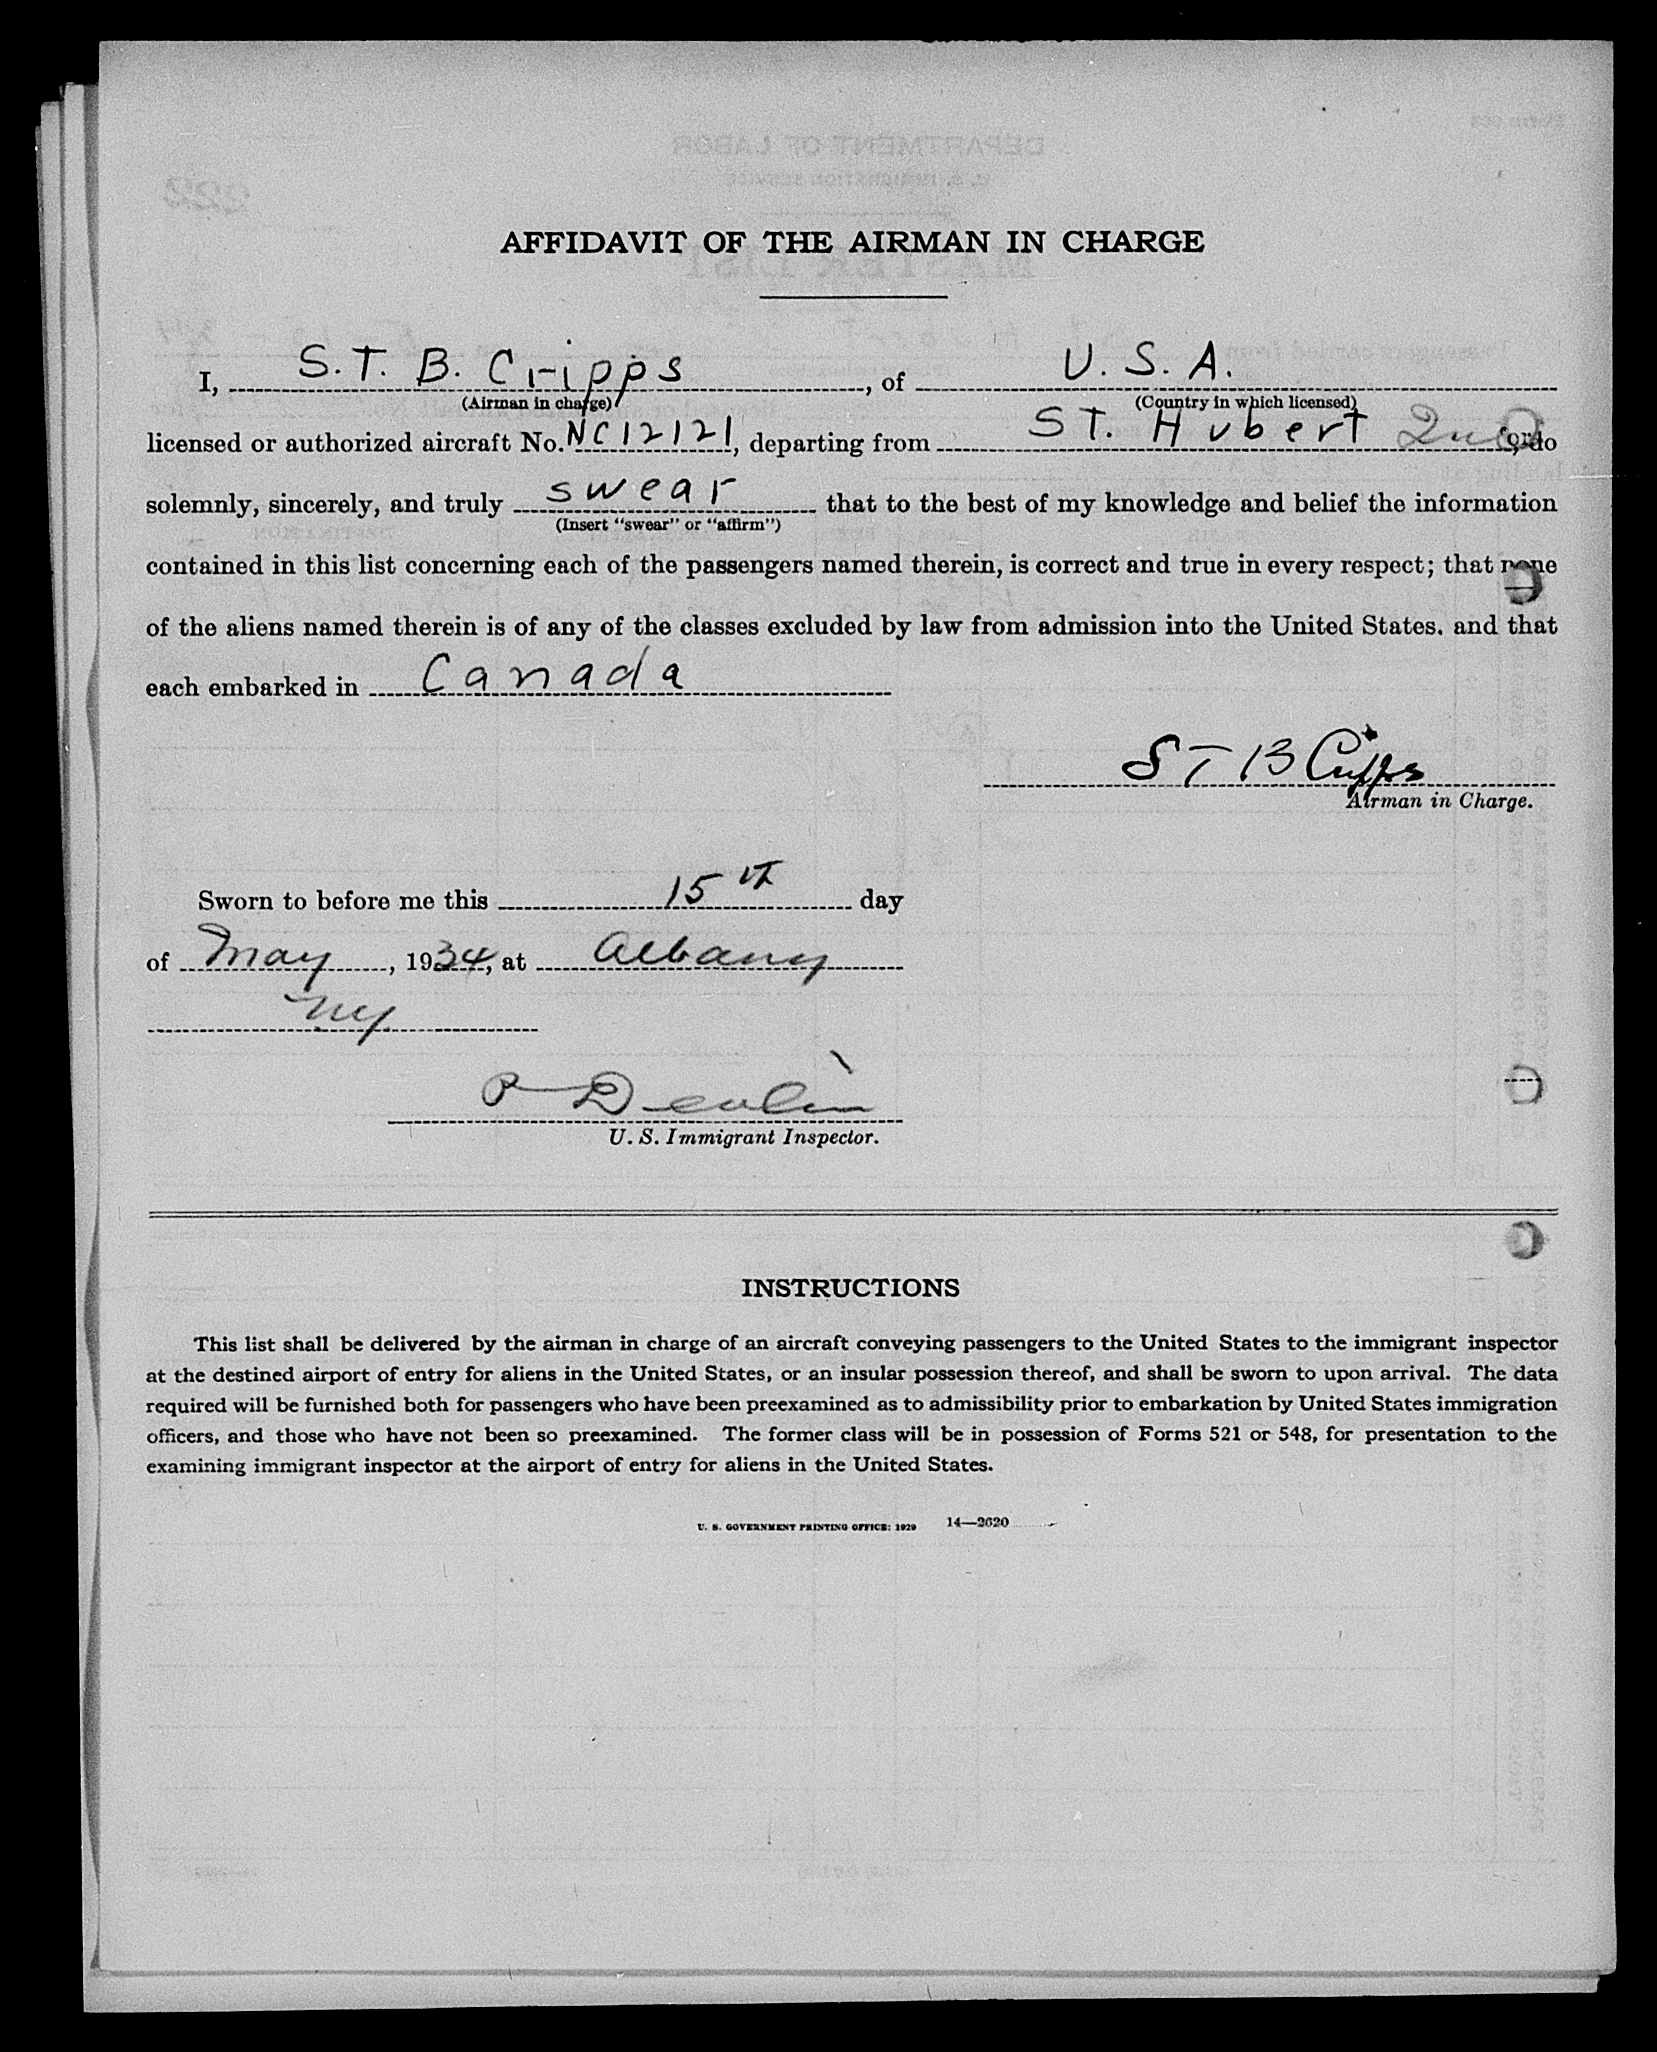 AFFIDAVIT OF THE AIRMAN IN CHARGE
I, S. T. B. Cripps, of U. S. A.
(Airman in charge) (Country in which licensed)
licensed or authorized aircraft No. NC12121, departing from ST. Hubert, do
solemnly, sincerely, and truly swear that to the best of my knowledge and belief the information
(Insert "swear" or "affirm")
contained in this list concerning each of the passengers named therein, is correct and true in every respect; that none
of the aliens named therein is of any of the classes excluded by law from admission into the United States. and that
each embarked in Canada
S T B Cripps
Airman in Charge.
Sworn to before me this 15th day
of May, 1934, at Albany
NY.
P Devlin
U. S. Immigrant Inspector.
INSTRUCTIONS
This list shall be delivered by the airman in charge of an aircraft conveying passengers to the United States to the immigrant inspector
at the destined airport of entry for aliens in the United States, or an insular possession thereof, and shall be sworn to upon arrival. The data
required will be furnished both for passengers who have been preexamined as to admissibility prior to embarkation by United States immigration
officers, and those who have not been so preexamined. The former class will be in possession of Forms 521 or 548, for presentation to the
examining immigrant inspector at the airport of entry for aliens in the United States.
U. S. GOVERNMENT PRINTING OFFICE: 1929 14—2620